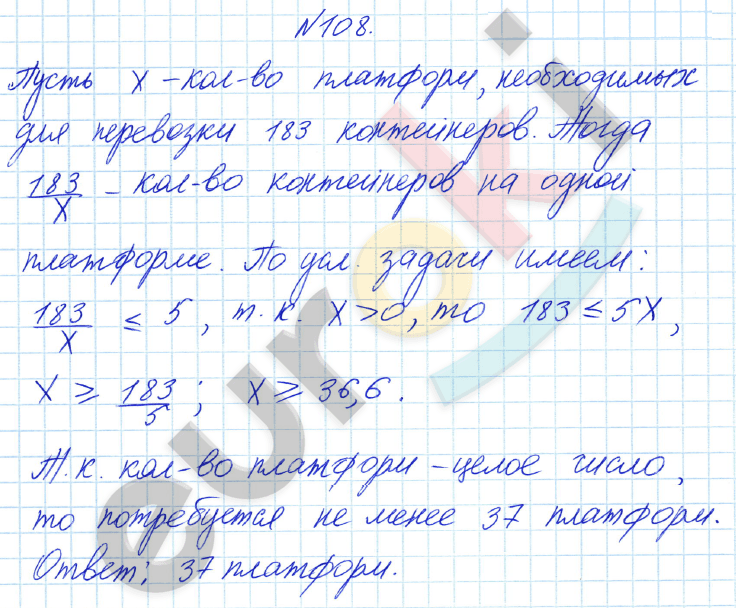 №108.
Пусть x – кол-во платформ, необходимых
для перевозки 183 контейнеров. Тогда
183/x – кол-во контейнеров на одной
платформе. По усл. задачи имеем:
183/x ≤ 5, т.к. x>0, то 183 ≤ 5x,
x ≥ 183/5; x ≥ 36,6.
Т.к. кол-во платформ – целое число,
то потребуется не менее 37 платформ.
Ответ: 37 платформ.
euroki